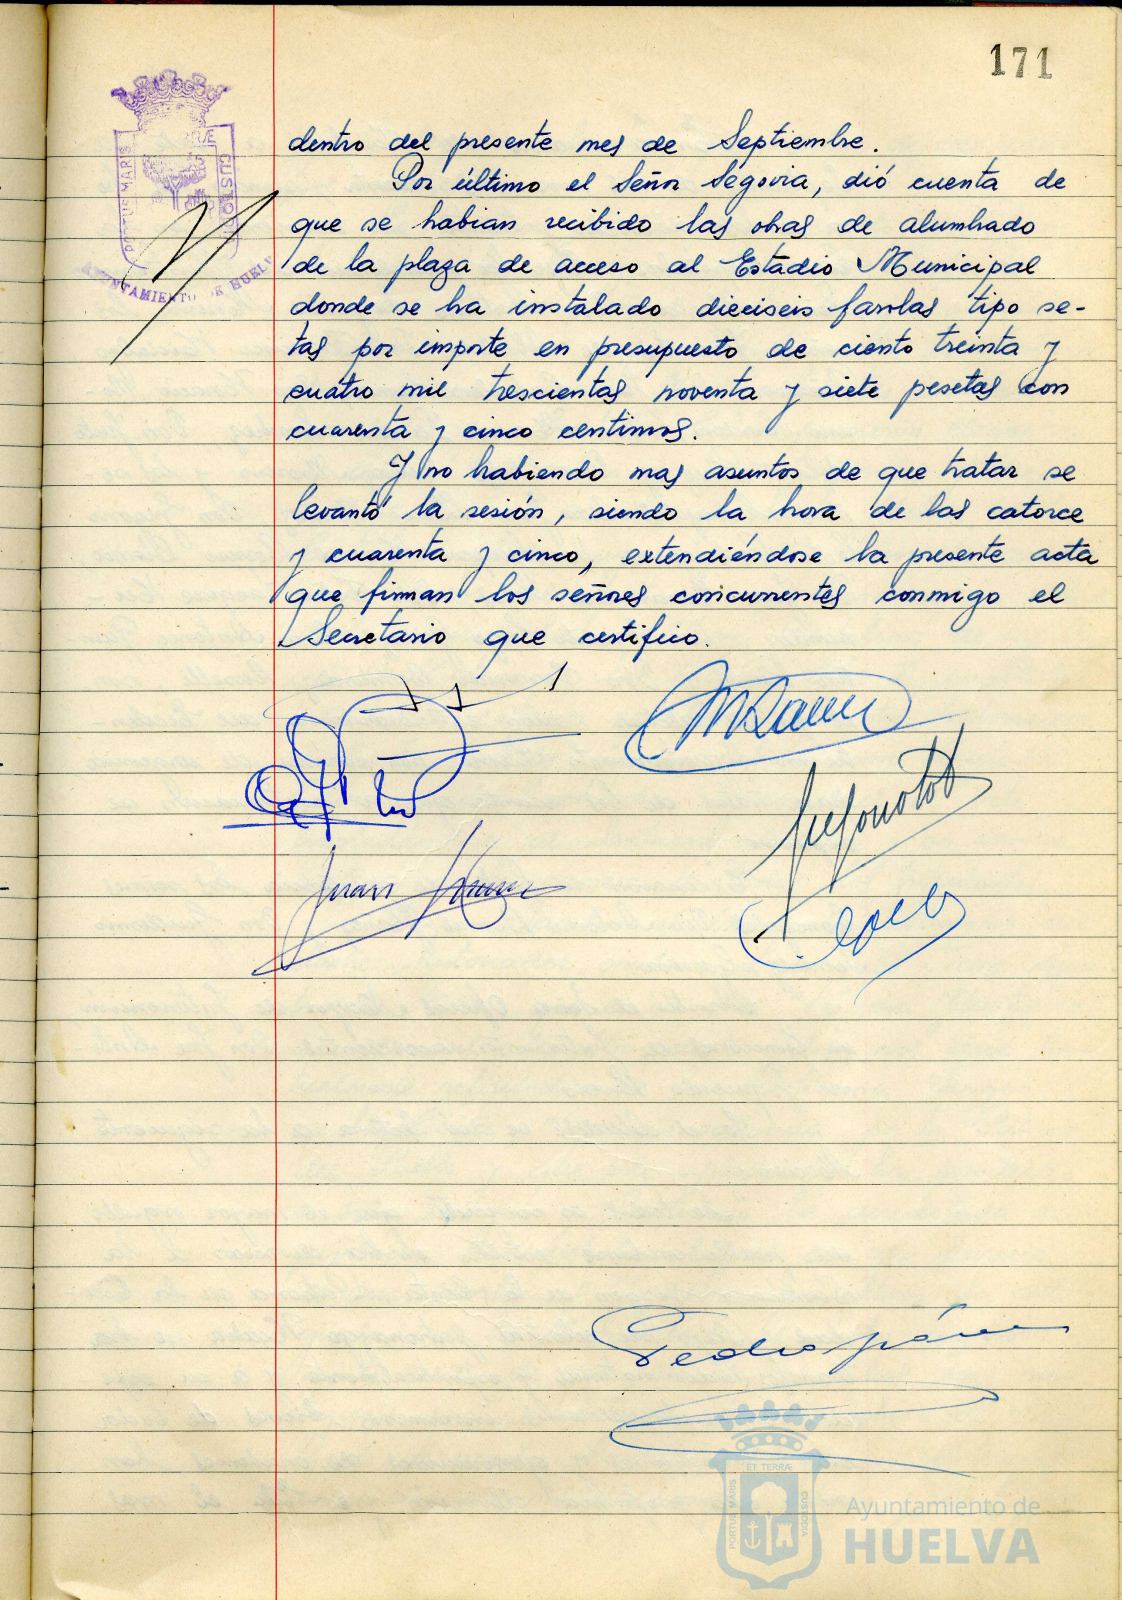 171
dentro del presente mes de Septiembre.
Por último el Señor Segovia, dió cuenta de
que se habian recibido las obras de alumbrado
de la plaza de acceso al Estadio Municipal
donde se ha instalado dieciseis farolas tipo se-
tas por importe en presupuesto de ciento treinta y
cuatro mil trescientas noventa y siete pesetas con
cuarenta y cinco centimos.
Y no habiendo mas asuntos de que tratar se
levantó la sesión, siendo la hora de las catorce
y cuarenta y cinco, extendiéndose la presente acta
que firman los señores concurrentes conmigo el
Secretario que certifico.
PORTUS MARIS
CUSTODIA
AYUNTAMIENTO DE HUELVA
Juan
Pedro
ET TERRÆ
PORTUS MARIS
CUSTODIA
Ayuntamiento de
HUELVA